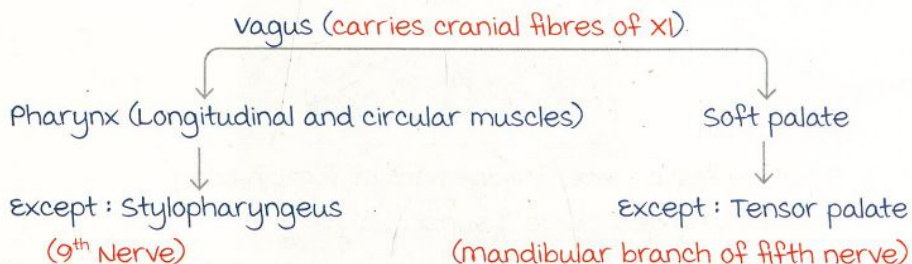 Vagus (carries cranial fibres of XI)
Pharynx (Longitudinal and circular muscles)
Soft palate
Except : Stylopharyngeus
Except : Tensor palate
(9th Nerve)
(mandibular branch of fifth nerve)